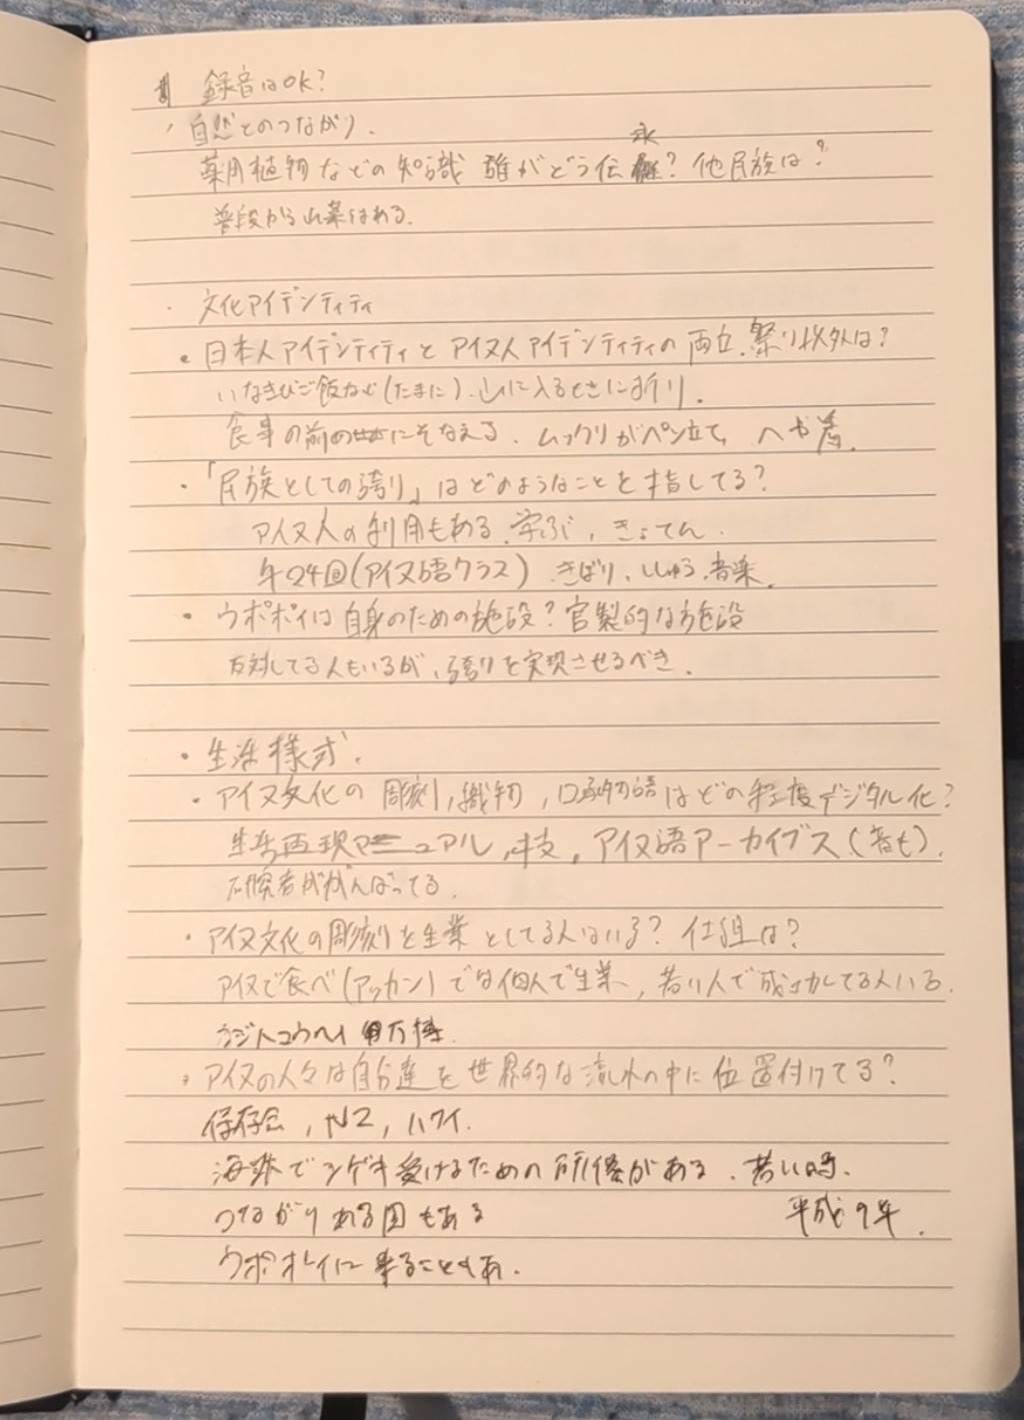 録音はOK?
・自然とのつながり.
薬用植物などの知識 誰がどう伝承? 他民族は?
普段から山菜はある.
・文化アイデンティティ
・日本人アイデンティティとアイヌ人アイデンティティの両立.祭り以外は?
いなきびご飯など(たまに).山に入るときに祈り.
食事の前のにそなえる.ムックリがペン立て
・「民族としての誇り」はどのようなことを指してる?
アイヌ人の利用もある.学ぶ,きょてん.
年24回(アイヌ語クラス).きぼり,ししゅう,音楽.
・ウポポイは自身のための施設?官製的な施設
反対してる人もいるが,誇りを実現させるべき.
・生活様式.
・アイヌ文化の彫刻,織物,口承物語はどの程度デジタル化?
生活再現マニュアル,技,アイヌ語アーカイブス(音も).
研究者ががんばってる.
・アイヌ文化の彫刻を生業としてる人はいる?仕組は?
アイヌで食べ(アッカン)では個人で生業,若い人で成功してる人いる.
万博.
・アイヌの人々は自分達を世界的な流れの中に位置付けてる?
保存会,NZ,ハワイ.
海外でシゲキ受けるための研修がある.若い時.
つながりある国もある 平成9年.
ウポポイに来ることもあ.